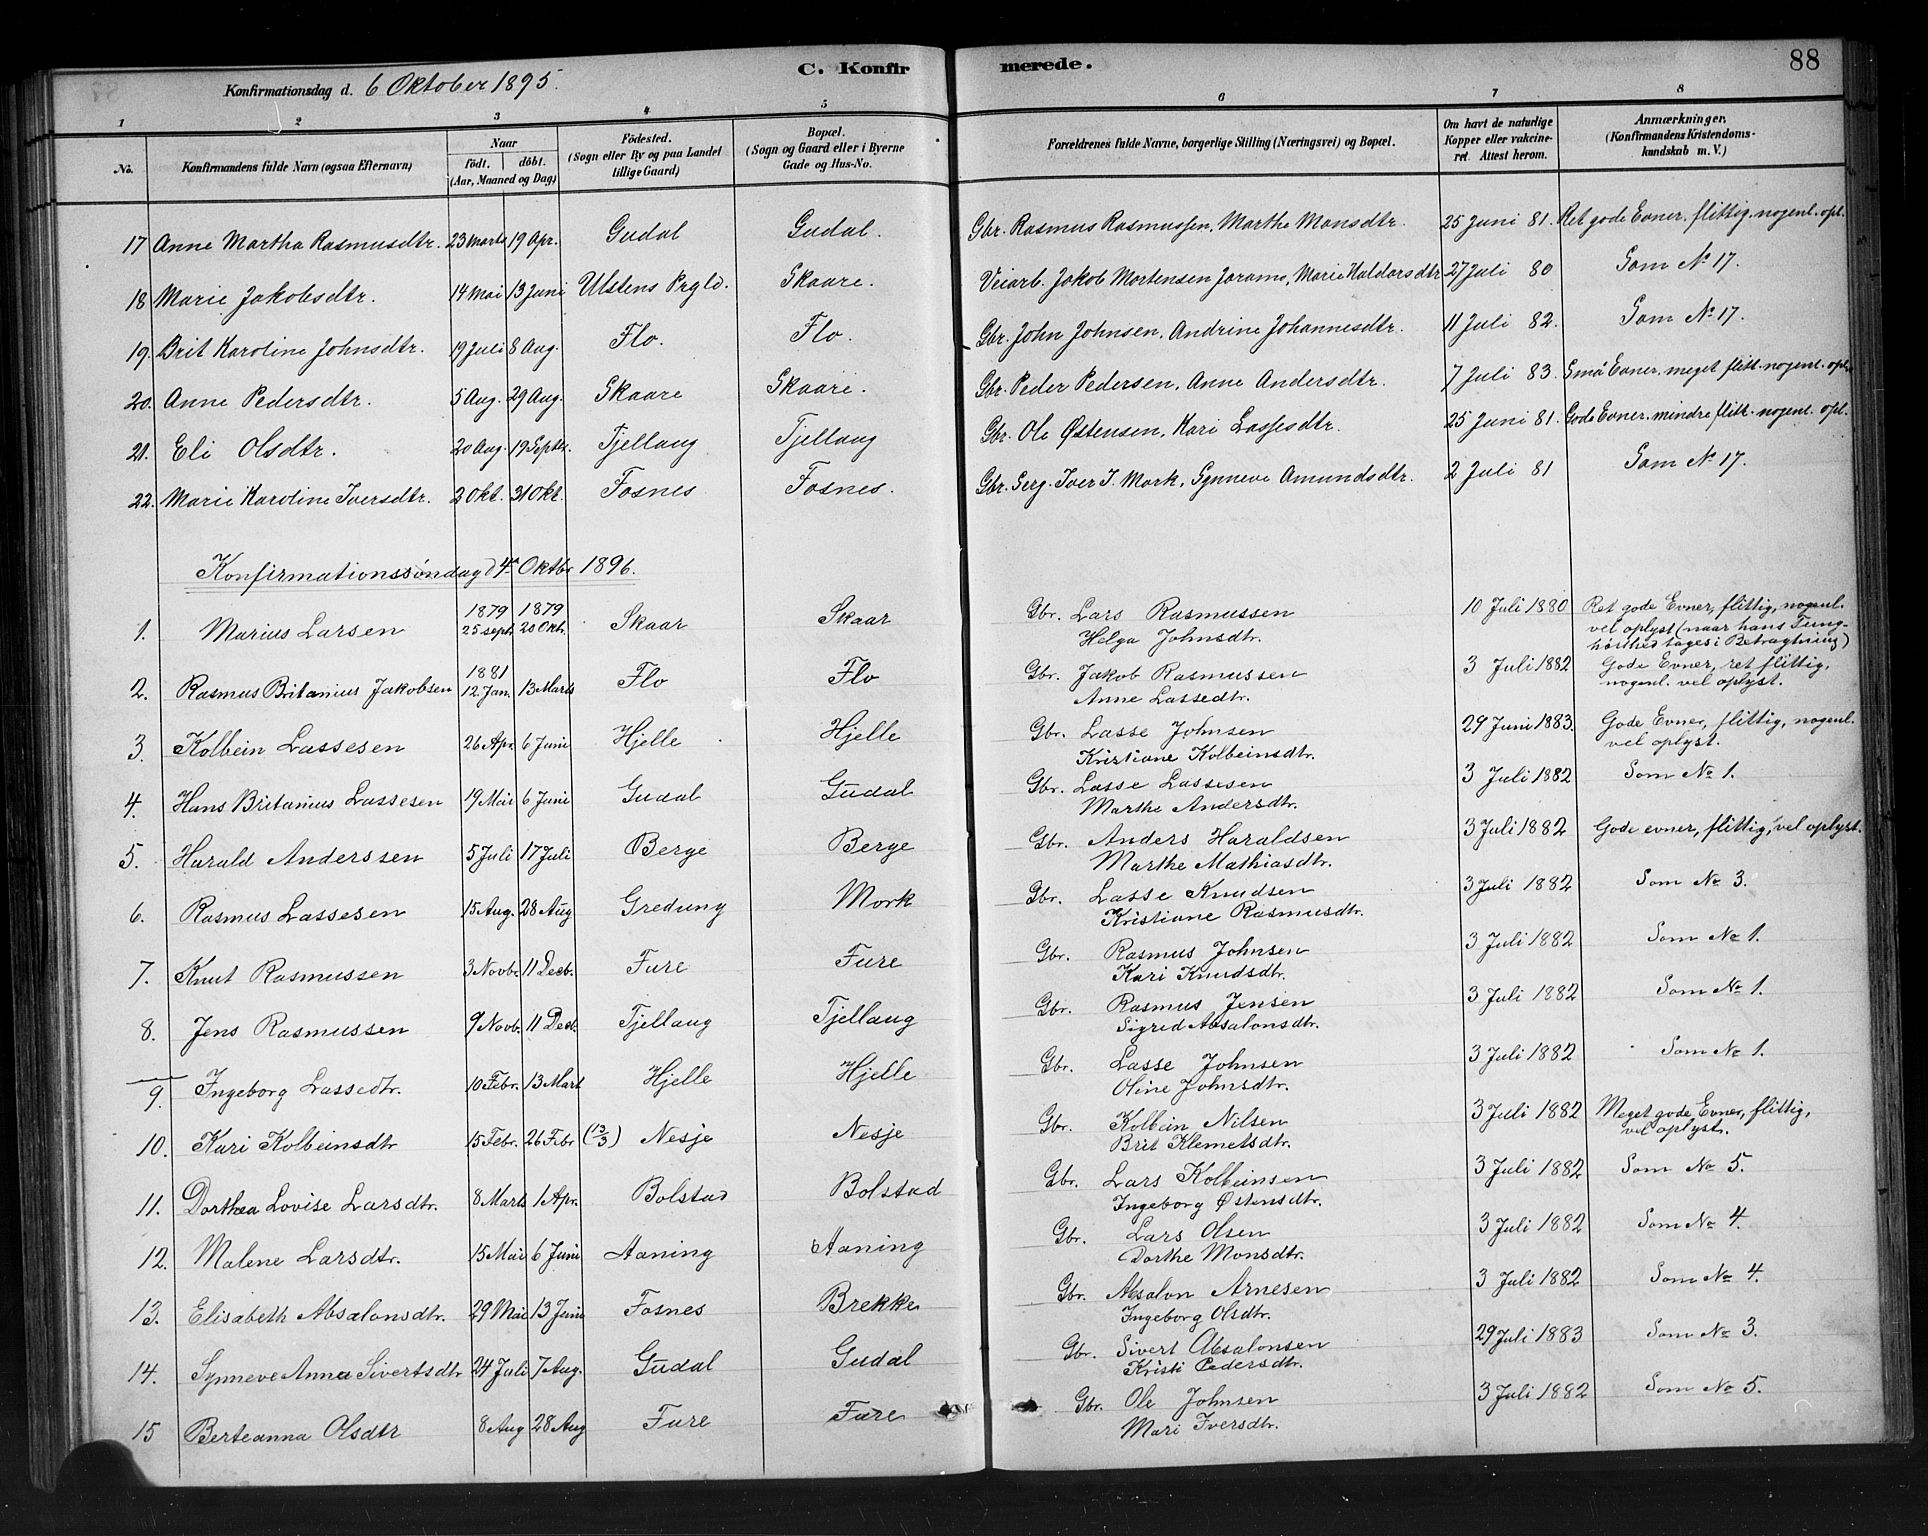 88
C. Konfirmerede.
Konfirmationsdag d. 6 Oktober 1895.
1 2 3 4 5 6 7 8
No. Konfirmandens fulde Navn (ogsaa Efternavn) Naar födt. döbt. (Aar, Maaned og Dag) Födested. (Sogn eller By og paa Landet tillige Gaard) Bopæl. (Sogn og Gaard eller i Byerne Gade og Hus-No. Forældrenes fulde Navne, borgerlige Stilling (Næringsvei) og Bopæl. Om havt de naturlige Kopper eller vakcineret. Attest herom. Anmærkninger. (Konfirmandens Kristendomskundskab m. V.)
17 Anne Martha Rasmusdtr. 23 Marts 19 Apr. Gudal Gudal. Gbr. Rasmus Rasmussen, Martha Monsdtr. 25 Juni 81. Ret gode Evner. flittig. nogenl. opl.
18 Marie Jakobsdtr. 14 Mai 13 Juni Ulstens Prgld. Skaare. Veiarb. Jakob Mortensen Marie Haldorsdtr 27 Juli 80 Som No 17.
19. Brit Karoline Johnsdtr. 19 Juli 8 Aug. Flo. Flo. Gbr. John Johnsen, Andrine Johannesdtr. 11 Juli 82. Som No 17.
20. Anne Pedersdtr. 5 Aug. 29 Aug. Skaare Skaare. Gbr. Peder Pedersen, Anne Andersdtr. 7 Juli 83. Små Evner. meget flitt. nogenl. opl.
21. Eli Olsdtr. 20 Aug. 19 Septr. Tjellaug Tjellaug Gbr. Ole Østensen, Kari Lassesdtr. 25 Juni 81. Gode Evner. mindre flitt. nogenl. opl.
22. Marie Karoline Iversdtr. 2 Okt. 31 Okt. Fosnes Fosnes. Gbr. Serg. Iver I. Mork, Synneve Amundsdtr. 2 Juli 81 Som No 17.
Konfirmationssøndag d 4 Oktbr 1896.
1. Marius Larsen 1879 25 septr. 1879 20 Oktr. Skaar Skaar Gbr. Lars Rasmussen Helga Johnsdtr. 10 Juli 1880 Ret gode Evner, flittig, nogenl. vel oplyst (naar hans Tunghørhed tages i Betragtning)
2. Rasmus Britanius Jakobsen 1881 12 Jan. 13 Marts Flo Flo Gbr. Jakob Rasmussen Anne Lassedtr. 3 Juli 1882 Gode Evner, ret flittig, nogenl. vel oplyst.
3. Kolbein Lassesen 26 Apr. 6 Juni Hjelle Hjelle Gbr. Lasse Johnsen Kristiane Kolbeinsdtr. 29 Juni 1883. Gode Evner, flittig, nogenl. vel oplyst.
4. Hans Britanius Lassesen 19 Mai 6 Juni Gudal Gudal Gbr. Lasse Lassesen Marthe Andersdtr. 3 Juli 1882 Som No 1.
5. Harald Anderssen 5 Juli 17 Juli Berge Berge Gbr. Anders Haraldsen Marthe Mathiasdtr. 3 Juli 1882 Gode evner, flittig, vel oplyst.
6. Rasmus Lassesen 15 Aug. 28 Aug Gredung Mork Gbr. Lasse Knudsen Kristiane Rasmusdtr. 3 Juli 1882 Som No 3.
7. Knut Rasmussen 3 Novbr. 11 Decb. Fure Fure Gbr. Rasmus Johnsen Kari Knudsdtr. 3 Juli 1882 Som No 1.
8. Jens Rasmussen 9 Novb. 11 Decb. Tjellaug Tjellaug Gbr. Rasmus Jensen Sigrid Absalonsdtr. 3 Juli 1882 Som No 1.
9. Ingeborg Lassedtr. 10 Febr. 13 Mart Hjelle Hjelle Gbr. Lasse Johnsen Oline Johnsdtr. 3 Juli 1882 Som No 1.
10. Kari Kolbeinsdtr 15 Febr. 26 Febr (13/3) Nesje Nesje Gbr. Kolbein Nilsen Brit Klemetsdtr. 3 Juli 1882 Meget gode Evner, flittig, vel oplyst.
11. Dorthea Lovise Larsdtr. 8 Marts 1 Apr. Bolstad Bolstad Gbr. Lars Kolbeinsen Ingeborg Østensdtr. 3 Juli 1882 Som No 5.
12. Malene Larsdtr. 15 Mai 6 Juni Aaning Aaning Gbr. Lars Olsen Dorthe Monsdtr. 3 Juli 1882 Som No 4.
13. Elisabeth Absalonsdtr. 29 Mai 13 Juni Fosnes Brekke Gbr. Absalon Arnesen Ingeborg Olsdtr. 3 Juli 1882 Som No 4.
14. Synneve Anna Sivertsdtr 24 Juli 7 Aug. Gudal Gudal Gbr. Sivert Absalonsen Kristi Pedersdtr. 29 Juli 1883 Som No 3.
15 Berteanna Olsdtr 8 Aug 28 Aug Fure Fure Gbr. Ole Johnsen Mari Iversdtr. 3 Juli 1882 Som No 5.